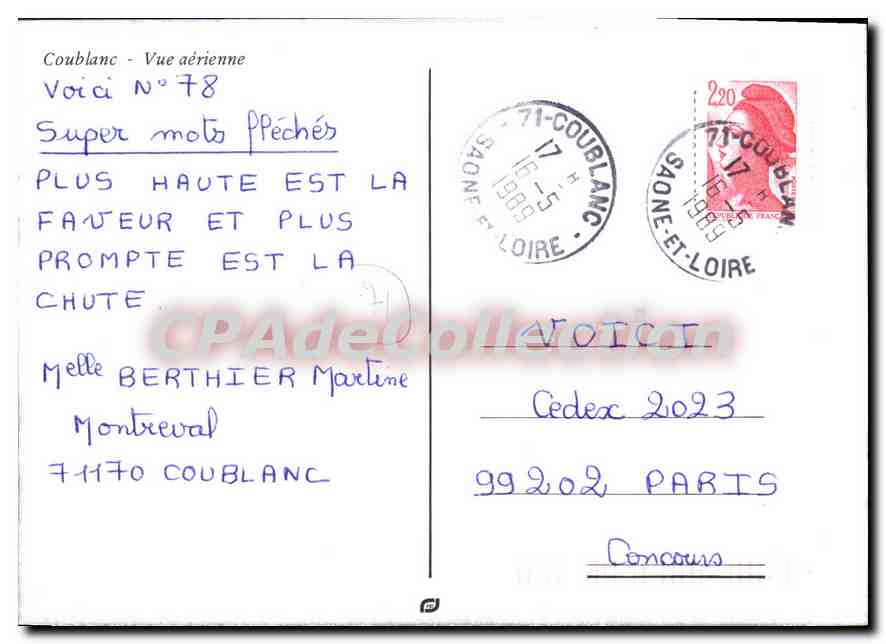 Coublanc - Vue aérienne
Voici N° 78
Super mots fléchés
PLUS HAUTE EST LA
FAVEUR ET PLUS
PROMPTE EST LA
CHUTE
Melle BERTHIER Martine
Montreval
71170 COUBLANC
71-COUBLANC
17 H
16-5
1989
SAONE-ET-LOIRE
2,20
REPUBLIQUE FRANC
71-COUBLAN
17 H
16-5
1989
SAONE-ET-LOIRE
CPAdeCollection
VOICI
Cedex 2023
99202 PARIS
Concours